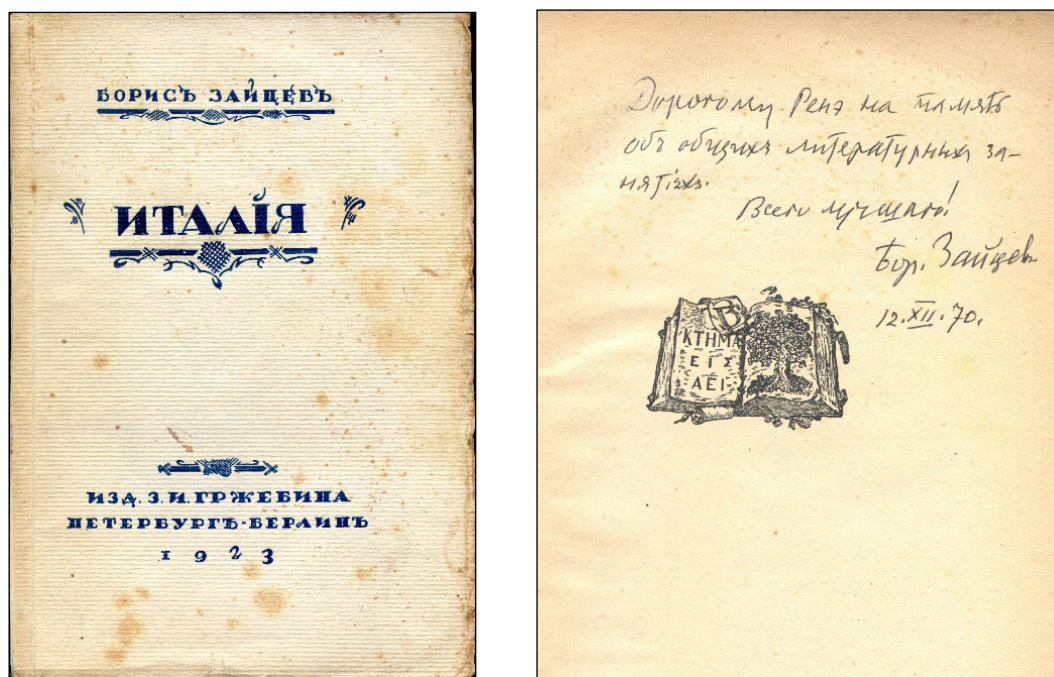 БОРИСЪ ЗАЙЦЕВЪ
ИТАЛІЯ
ИЗД. З. И. ГРЖЕБИНА
ПЕТЕРБУРГЪ-БЕРЛИНЪ
1923
Дорогому Ренэ на память
объ общихъ литературныхъ за-
нятіяхъ.
Всего лучшаго!
Бор. Зайцев
12.XII.70.
ΚΤΗΜΑ
ΕΙΣ
ΑΕΙ